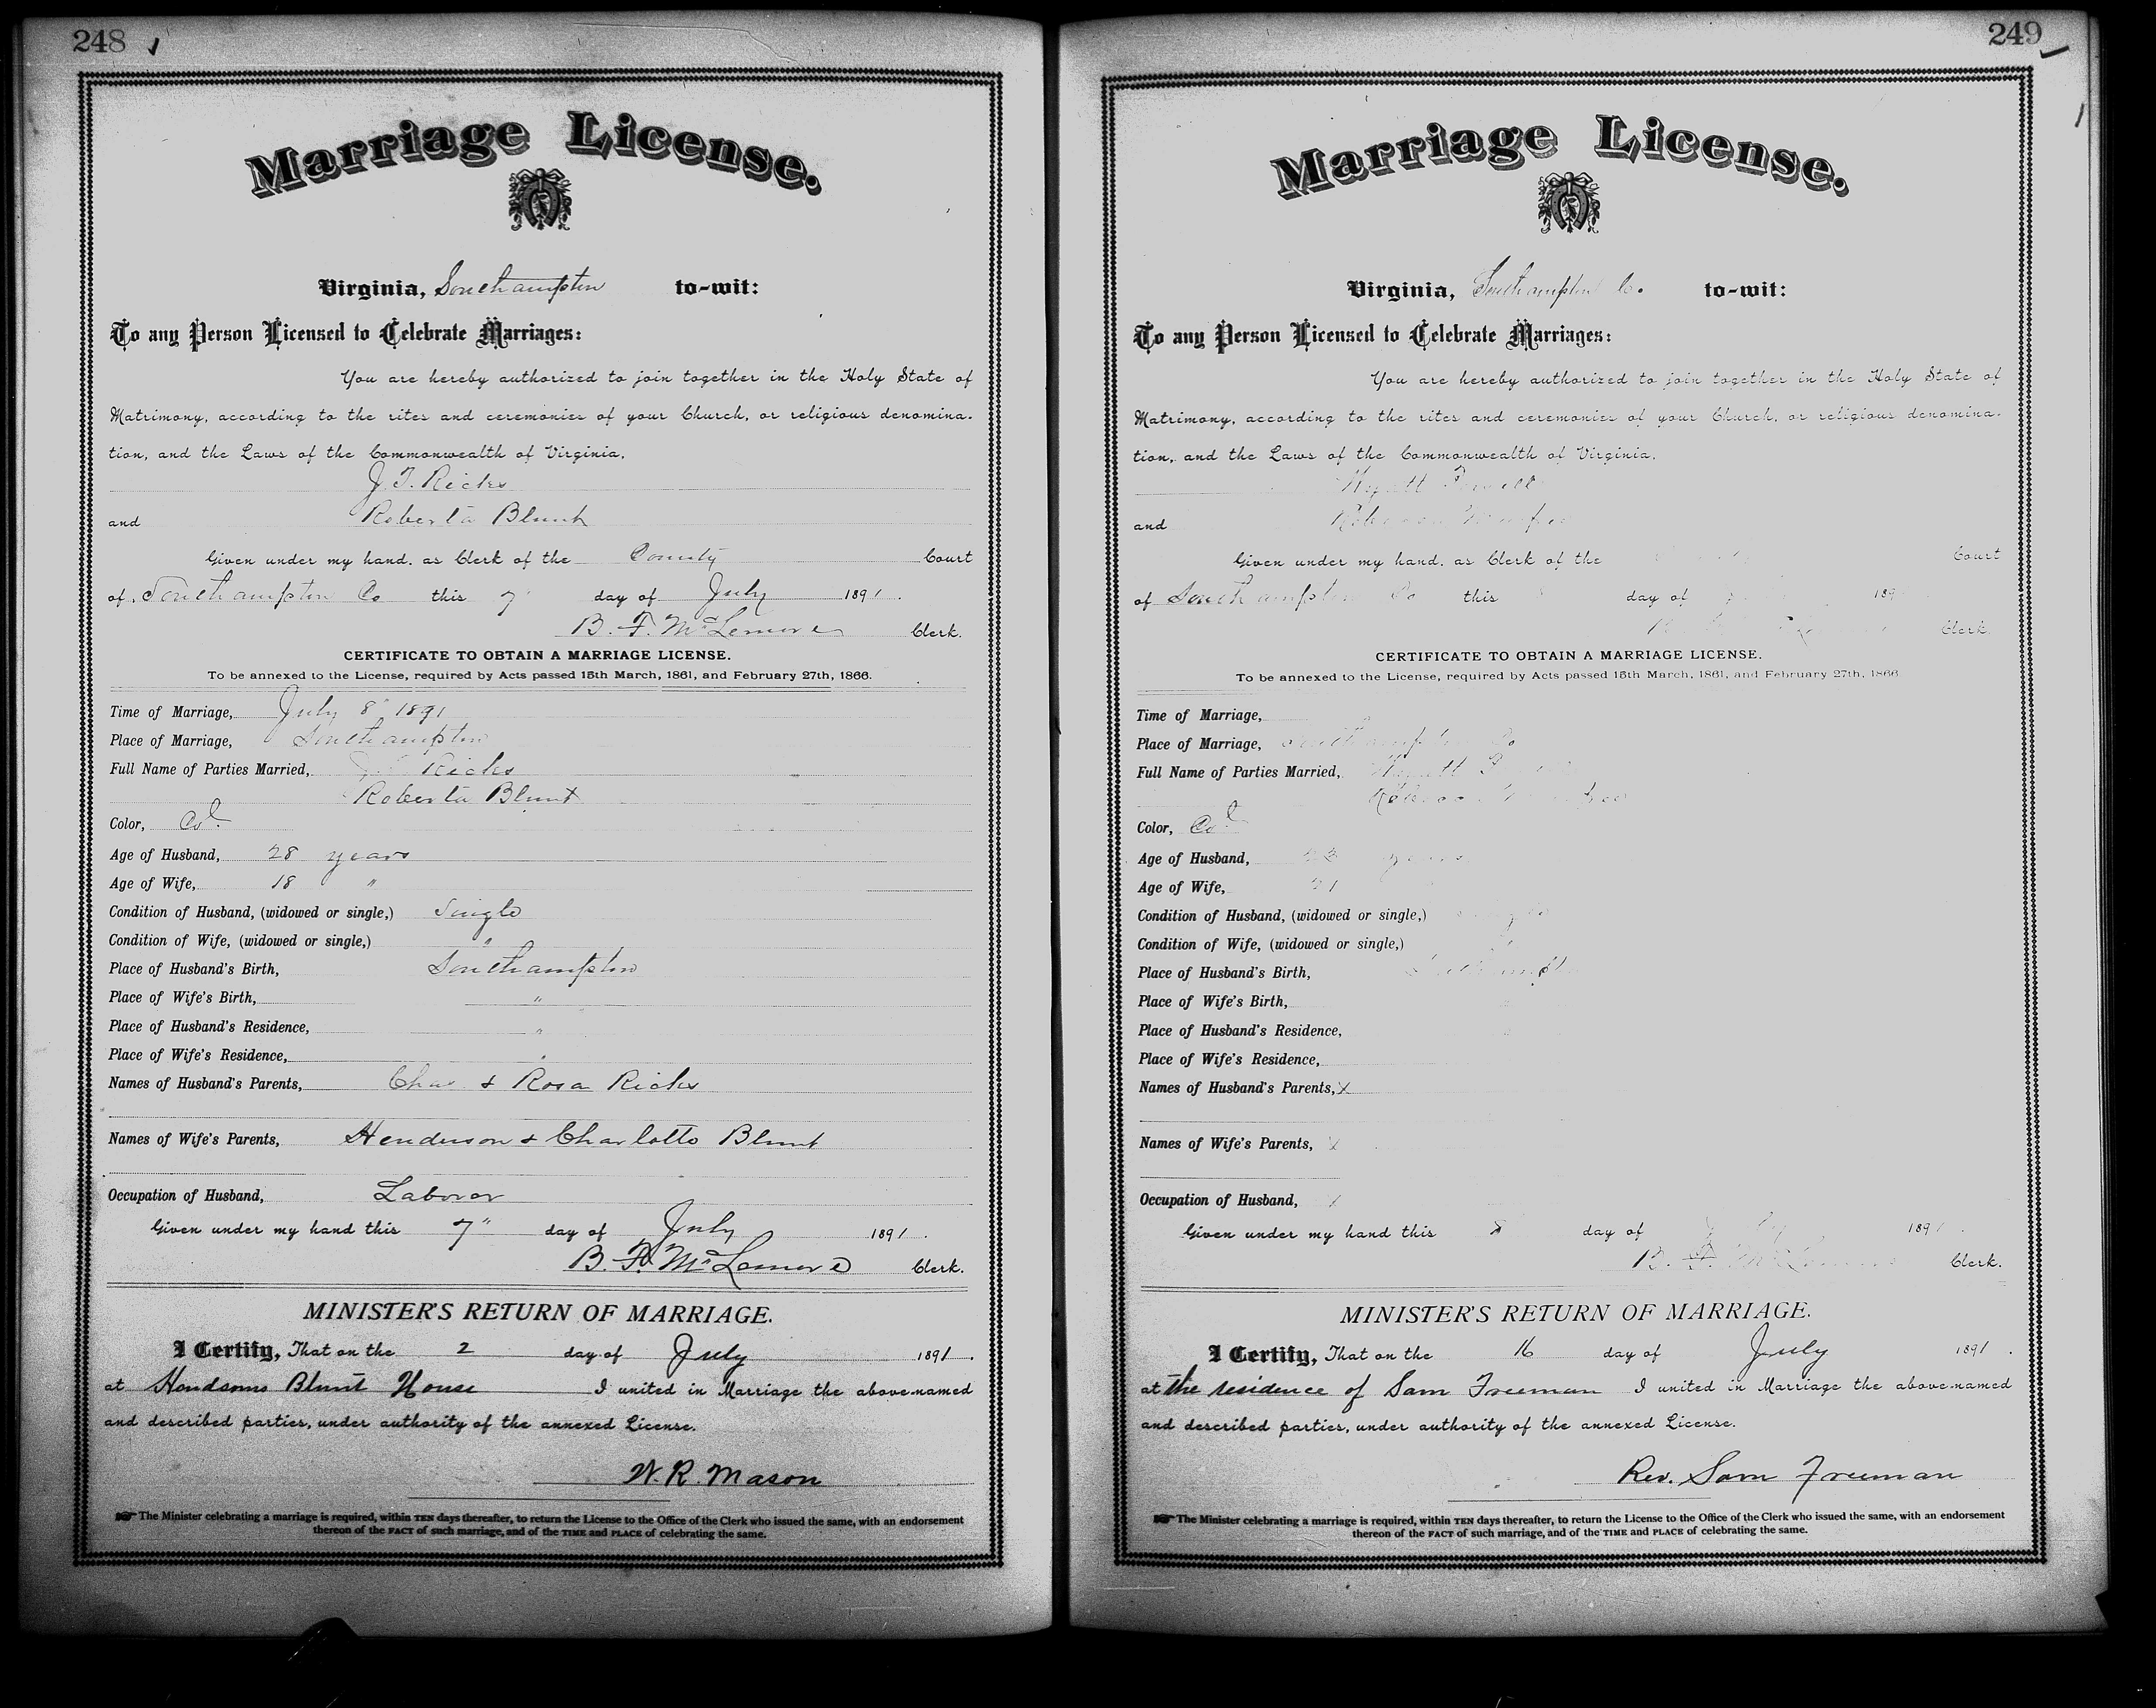 248
Marriage License.
Virginia, Southampton to-wit:
To any Person Licensed to Celebrate Marriages:
You are hereby authorized to join together in the Holy State of
Matrimony, according to the rites and ceremonies of your Church, or religious denomina-
tion, and the Laws of the Commonwealth of Virginia.
J. T. Ricks
and Roberta Blunt
Given under my hand, as Clerk of the County Court
of Southampton Co this 7 day of July 1891.
B. F. McLemore Clerk.
CERTIFICATE TO OBTAIN A MARRIAGE LICENSE.
To be annexed to the License, required by Acts passed 15th March, 1861, and February 27th, 1866.
Time of Marriage, July 8" 1891
Place of Marriage, Southampton
Full Name of Parties Married, Ricks
Roberta Blunt
Color, Col
Age of Husband, 28 years
Age of Wife, 18 "
Condition of Husband, (widowed or single,) Single
Condition of Wife, (widowed or single,) "
Place of Husband's Birth, Southampton
Place of Wife's Birth, "
Place of Husband's Residence, "
Place of Wife's Residence, "
Names of Husband's Parents, Chas & Rosa Ricks
Names of Wife's Parents, Henderson & Charlotte Blunt
Occupation of Husband, Laborer
Given under my hand this 7" day of July 1891.
B. F. McLemore Clerk.
MINISTER'S RETURN OF MARRIAGE.
I Certify, That on the 2 day of July 1891.
at Hendsome Blunt House I united in Marriage the above-named
and described parties, under authority of the annexed License.
W. R. Mason
The Minister celebrating a marriage is required, within TEN days thereafter, to return the License to the Office of the Clerk who issued the same, with an endorsement
thereof of the FACT of such marriage, and of the TIME and PLACE of celebrating the same.
249
Marriage License.
Virginia, Southampton Co. to-wit:
To any Person Licensed to Celebrate Marriages:
You are hereby authorized to join together in the Holy State of
Matrimony, according to the rites and ceremonies of your Church, or religious denomina-
tion, and the Laws of the Commonwealth of Virginia.
and
Given under my hand, as Clerk of the Court
of Southampton Co this day of 189
Clerk.
CERTIFICATE TO OBTAIN A MARRIAGE LICENSE.
To be annexed to the License, required by Acts passed 15th March, 1861, and February 27th, 1866
Time of Marriage,
Place of Marriage, Southampton Co
Full Name of Parties Married,
Color, Col
Age of Husband, years
Age of Wife, 21
Condition of Husband, (widowed or single,)
Condition of Wife, (widowed or single,)
Place of Husband's Birth, Southampton
Place of Wife's Birth,
Place of Husband's Residence,
Place of Wife's Residence,
Names of Husband's Parents, X
Names of Wife's Parents, X
Occupation of Husband,
Given under my hand this day of July 1891.
B. F. McLemore Clerk.
MINISTER'S RETURN OF MARRIAGE.
I Certify, That on the 16 day of July 1891.
at the residence of Sam Freeman I united in Marriage the above-named
and described parties, under authority of the annexed License.
Rev. Sam Freeman
The Minister celebrating a marriage is required, within TEN days thereafter, to return the License to the Office of the Clerk who issued the same, with an endorsement
thereof of the FACT of such marriage, and of the TIME and PLACE of celebrating the same.